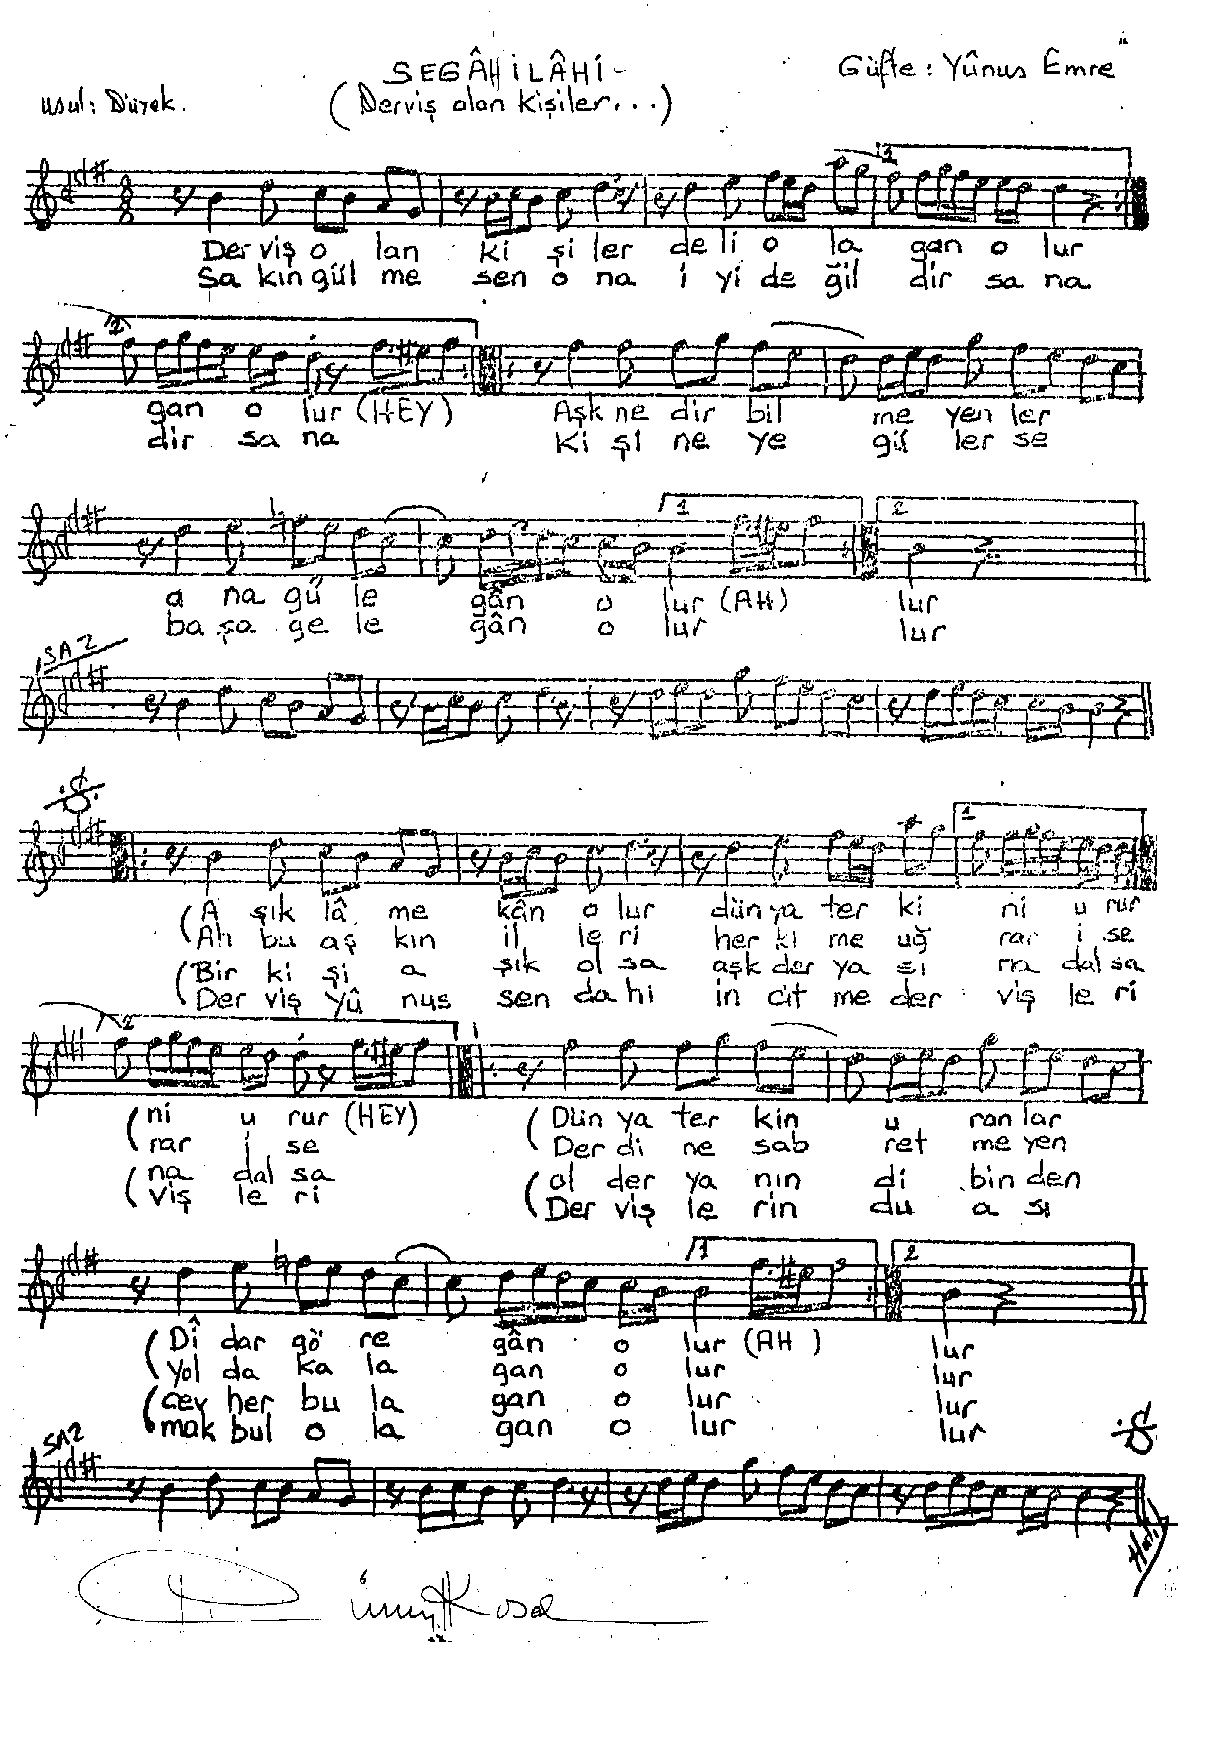 SEGÂH İLÂHİ-
Güfte: Yûnus Emre
usul: Düyek.
(Derviş olan kişiler...)
1
Der viş o lan ki şi ler de li o la gan o lur
Sa kın gül me sen o na i yi de ğil dir sa na
2
gan o lur (HEY) Aşk ne dir bil me yen ler
dir sa na Ki şi ne ye gü ler se
1 2
a na gü le gân o lur (AH) lur
ba şa ge le gân o lur lur
SAZ
1
(A şık lâ me kân o lur dün ya ter ki ni u rur
Ah bu aş kın il le ri her ki me uğ rar i se
(Bir ki şi a şık ol sa aşk der ya sı na dal sa
Der viş yû nus sen da hi in cit me der viş le ri
2
(ni u rur (HEY) (Dün ya ter kin u ran lar
rar i se Der di ne sab ret me yen
(na dal sa (ol der ya nın di bin den
viş le ri Der viş le rin du a sı
1 2
(Dî dar gö re gân o lur (AH) lur
Yol da ka la gan o lur lur
(cev her bu la gan o lur lur
mak bul o la gan o lur lur
SAZ